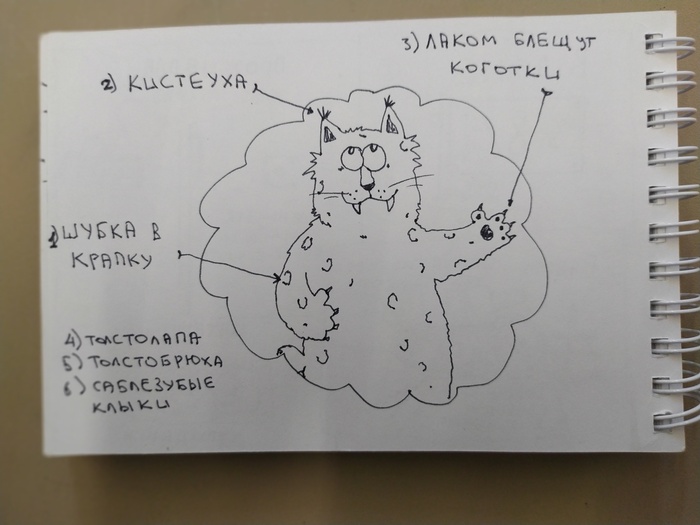 3) ЛАКОМ БЛЕЩУТ
КОГОТКИ
2) КИСТЕУХА
1) ШУБКА В
КРАПКУ
4) ТОЛСТОЛАПА
5) ТОЛСТОБРЮХА
6) САБЛЕЗУБЫЕ
КЛЫКИ